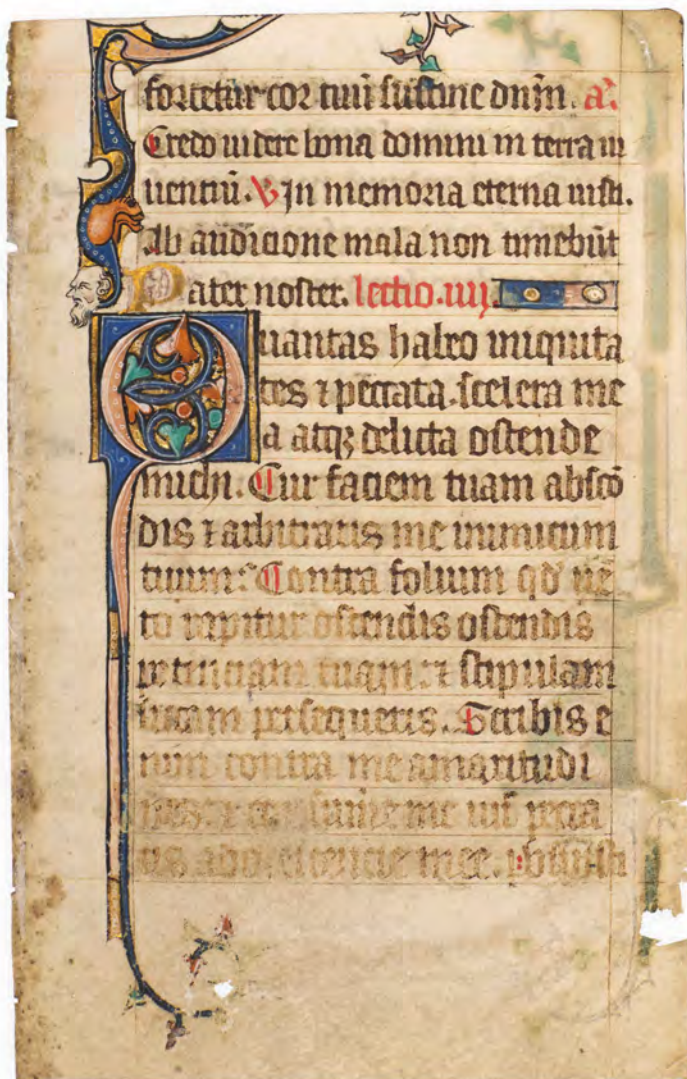 fortetur cor tuū sustine dnm̄. a.
Credo uidere bona domini in terra ui
uentiū. V In memoria eterna iusti.
Ab audicione mala non timebūt
Pater noster. lectio.iiij.
Quantas habeo iniquita
tes ⁊ peccata. scelera me
a atqꝫ delicta ostende
michi. Cur faciem tuam abscō
dis ⁊ arbitraris me inimicum
tuum. Contra folium qd' uē
to rapitur ostendis ostendis
potenciam tuam. ⁊ stipulam
siccam persequeris. Scribis e
nim contra me amaritudi
nes. ⁊ consumere me uis pecca
tis adolescencie mee.